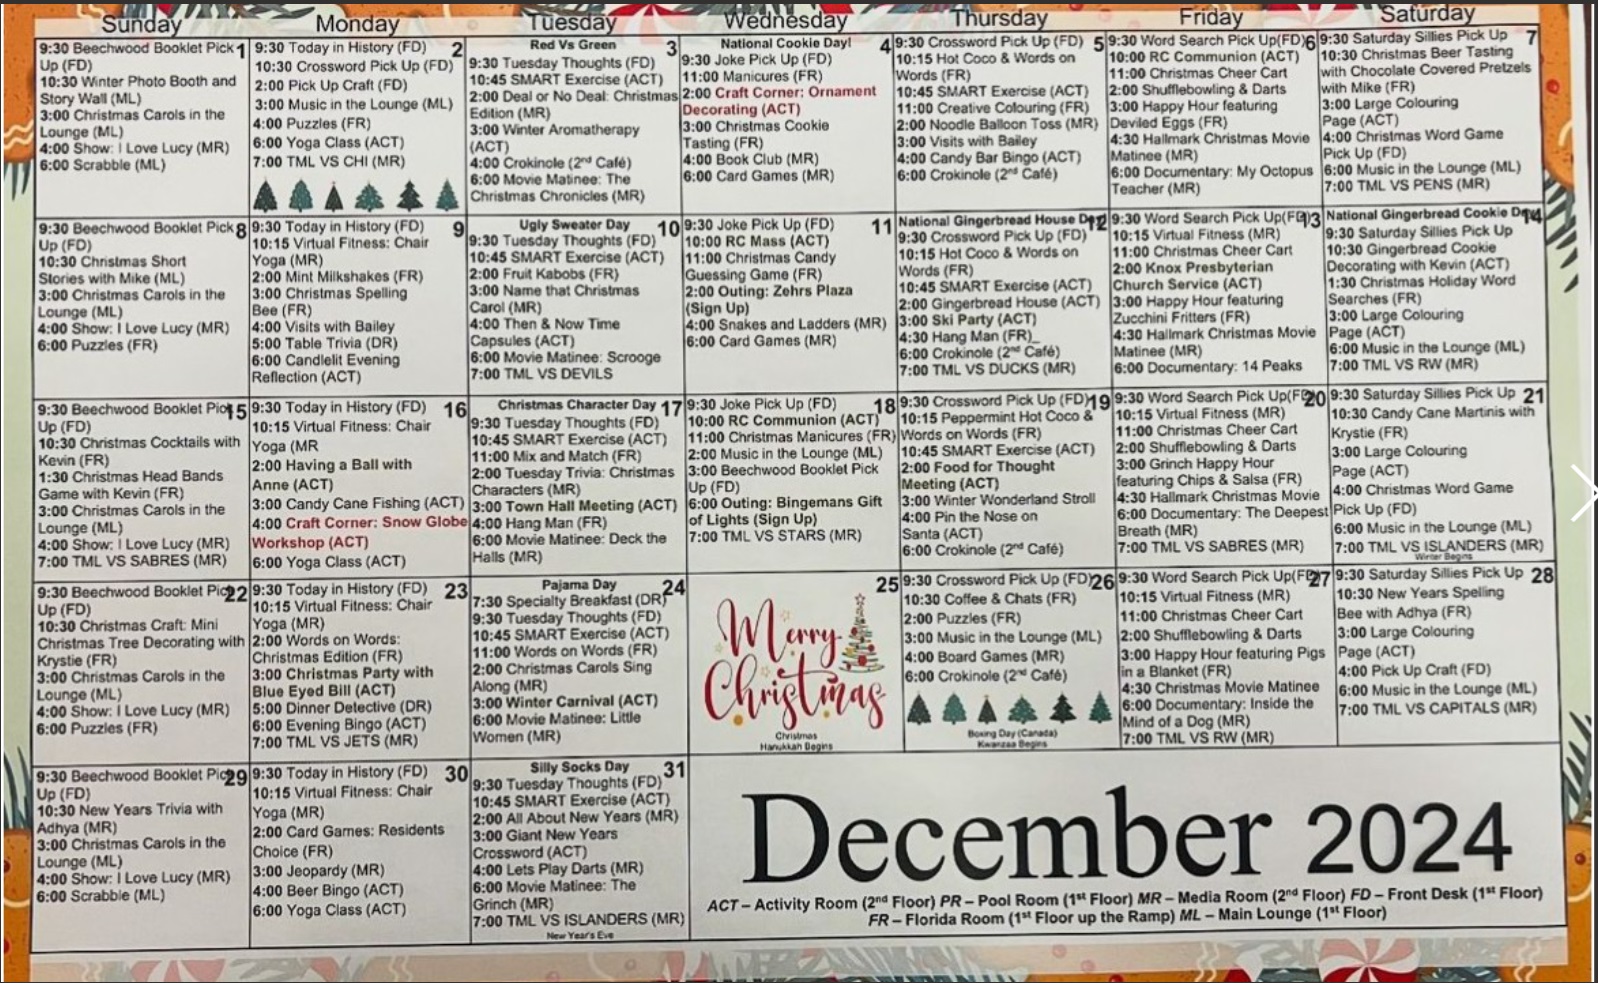 Sunday
Monday
Tuesday
Wednesday
Thursday
Friday
Saturday
1
9:30 Beechwood Booklet Pick
Up (FD)
10:30 Winter Photo Booth and
Story Wall (ML)
3:00 Christmas Carols in the
Lounge (ML)
4:00 Show: I Love Lucy (MR)
6:00 Scrabble (ML)
2
9:30 Today in History (FD)
10:30 Crossword Pick Up (FD)
2:00 Pick Up Craft (FD)
3:00 Music in the Lounge (ML)
4:00 Puzzles (FR)
6:00 Yoga Class (ACT)
7:00 TML VS CHI (MR)
3
Red Vs Green
9:30 Tuesday Thoughts (FD)
10:45 SMART Exercise (ACT)
2:00 Deal or No Deal: Christmas
Edition (MR)
3:00 Winter Aromatherapy
(ACT)
4:00 Crokinole (2nd Café)
6:00 Movie Matinee: The
Christmas Chronicles (MR)
4
National Cookie Day!
9:30 Joke Pick Up (FD)
11:00 Manicures (FR)
2:00 Craft Corner: Ornament
Decorating (ACT)
3:00 Christmas Cookie
Tasting (FR)
4:00 Book Club (MR)
6:00 Card Games (MR)
5
9:30 Crossword Pick Up (FD)
10:15 Hot Coco & Words on
Words (FR)
10:45 SMART Exercise (ACT)
11:00 Creative Colouring (FR)
2:00 Noodle Balloon Toss (MR)
3:00 Visits with Bailey
4:00 Candy Bar Bingo (ACT)
6:00 Crokinole (2nd Café)
6
9:30 Word Search Pick Up(FD)
10:00 RC Communion (ACT)
11:00 Christmas Cheer Cart
2:00 Shufflebowling & Darts
3:00 Happy Hour featuring
Deviled Eggs (FR)
4:30 Hallmark Christmas Movie
Matinee (MR)
6:00 Documentary: My Octopus
Teacher (MR)
7
9:30 Saturday Sillies Pick Up
10:30 Christmas Beer Tasting
with Chocolate Covered Pretzels
with Mike (FR)
3:00 Large Colouring
Page (ACT)
4:00 Christmas Word Game
Pick Up (FD)
6:00 Music in the Lounge (ML)
7:00 TML VS PENS (MR)
8
9:30 Beechwood Booklet Pick
Up (FD)
10:30 Christmas Short
Stories with Mike (ML)
3:00 Christmas Carols in the
Lounge (ML)
4:00 Show: I Love Lucy (MR)
6:00 Puzzles (FR)
9
9:30 Today in History (FD)
10:15 Virtual Fitness: Chair
Yoga (MR)
2:00 Mint Milkshakes (FR)
3:00 Christmas Spelling
Bee (FR)
4:00 Visits with Bailey
5:00 Table Trivia (DR)
6:00 Candlelit Evening
Reflection (ACT)
10
Ugly Sweater Day
9:30 Tuesday Thoughts (FD)
10:45 SMART Exercise (ACT)
2:00 Fruit Kabobs (FR)
3:00 Name that Christmas
Carol (MR)
4:00 Then & Now Time
Capsules (ACT)
6:00 Movie Matinee: Scrooge
7:00 TML VS DEVILS
11
9:30 Joke Pick Up (FD)
10:00 RC Mass (ACT)
11:00 Christmas Candy
Guessing Game (FR)
2:00 Outing: Zehrs Plaza
(Sign Up)
4:00 Snakes and Ladders (MR)
6:00 Card Games (MR)
12
National Gingerbread House Day
9:30 Crossword Pick Up (FD)
10:15 Hot Coco & Words on
Words (FR)
10:45 SMART Exercise (ACT)
2:00 Gingerbread House (ACT)
3:00 Ski Party (ACT)
4:30 Hang Man (FR)_
6:00 Crokinole (2nd Café)
7:00 TML VS DUCKS (MR)
13
9:30 Word Search Pick Up(FD)
10:15 Virtual Fitness (MR)
11:00 Christmas Cheer Cart
2:00 Knox Presbyterian
Church Service (ACT)
3:00 Happy Hour featuring
Zucchini Fritters (FR)
4:30 Hallmark Christmas Movie
Matinee (MR)
6:00 Documentary: 14 Peaks
14
National Gingerbread Cookie Day
9:30 Saturday Sillies Pick Up
10:30 Gingerbread Cookie
Decorating with Kevin (ACT)
1:30 Christmas Holiday Word
Searches (FR)
3:00 Large Colouring
Page (ACT)
6:00 Music in the Lounge (ML)
7:00 TML VS RW (MR)
15
9:30 Beechwood Booklet Pick
Up (FD)
10:30 Christmas Cocktails with
Kevin (FR)
1:30 Christmas Head Bands
Game with Kevin (FR)
3:00 Christmas Carols in the
Lounge (ML)
4:00 Show: I Love Lucy (MR)
7:00 TML VS SABRES (MR)
16
9:30 Today in History (FD)
10:15 Virtual Fitness: Chair
Yoga (MR
2:00 Having a Ball with
Anne (ACT)
3:00 Candy Cane Fishing (ACT)
4:00 Craft Corner: Snow Globe
Workshop (ACT)
6:00 Yoga Class (ACT)
17
Christmas Character Day
9:30 Tuesday Thoughts (FD)
10:45 SMART Exercise (ACT)
11:00 Mix and Match (FR)
2:00 Tuesday Trivia: Christmas
Characters (MR)
3:00 Town Hall Meeting (ACT)
4:00 Hang Man (FR)
6:00 Movie Matinee: Deck the
Halls (MR)
18
9:30 Joke Pick Up (FD)
10:00 RC Communion (ACT)
11:00 Christmas Manicures (FR)
2:00 Music in the Lounge (ML)
3:00 Beechwood Booklet Pick
Up (FD)
6:00 Outing: Bingemans Gift
of Lights (Sign Up)
7:00 TML VS STARS (MR)
19
9:30 Crossword Pick Up (FD)
10:15 Peppermint Hot Coco &
Words on Words (FR)
10:45 SMART Exercise (ACT)
2:00 Food for Thought
Meeting (ACT)
3:00 Winter Wonderland Stroll
4:00 Pin the Nose on
Santa (ACT)
6:00 Crokinole (2nd Café)
20
9:30 Word Search Pick Up(FD)
10:15 Virtual Fitness (MR)
11:00 Christmas Cheer Cart
2:00 Shufflebowling & Darts
3:00 Grinch Happy Hour
featuring Chips & Salsa (FR)
4:30 Hallmark Christmas Movie
6:00 Documentary: The Deepest
Breath (MR)
7:00 TML VS SABRES (MR)
21
9:30 Saturday Sillies Pick Up
10:30 Candy Cane Martinis with
Krystie (FR)
3:00 Large Colouring
Page (ACT)
4:00 Christmas Word Game
Pick Up (FD)
6:00 Music in the Lounge (ML)
7:00 TML VS ISLANDERS (MR)
Winter Begins
22
9:30 Beechwood Booklet Pick
Up (FD)
10:30 Christmas Craft: Mini
Christmas Tree Decorating with
Krystie (FR)
3:00 Christmas Carols in the
Lounge (ML)
4:00 Show: I Love Lucy (MR)
6:00 Puzzles (FR)
23
9:30 Today in History (FD)
10:15 Virtual Fitness: Chair
Yoga (MR)
2:00 Words on Words:
Christmas Edition (FR)
3:00 Christmas Party with
Blue Eyed Bill (ACT)
5:00 Dinner Detective (DR)
6:00 Evening Bingo (ACT)
7:00 TML VS JETS (MR)
24
Pajama Day
7:30 Specialty Breakfast (DR)
9:30 Tuesday Thoughts (FD)
10:45 SMART Exercise (ACT)
11:00 Words on Words (FR)
2:00 Christmas Carols Sing
Along (MR)
3:00 Winter Carnival (ACT)
6:00 Movie Matinee: Little
Women (MR)
25
Merry
Christmas
Christmas
Hanukkah Begins
26
9:30 Crossword Pick Up (FD)
10:30 Coffee & Chats (FR)
2:00 Puzzles (FR)
3:00 Music in the Lounge (ML)
4:00 Board Games (MR)
6:00 Crokinole (2nd Café)
Boxing Day (Canada)
Kwanzaa Begins
27
9:30 Word Search Pick Up(FD)
10:15 Virtual Fitness (MR)
11:00 Christmas Cheer Cart
2:00 Shufflebowling & Darts
3:00 Happy Hour featuring Pigs
in a Blanket (FR)
4:30 Christmas Movie Matinee
6:00 Documentary: Inside the
Mind of a Dog (MR)
7:00 TML VS RW (MR)
28
9:30 Saturday Sillies Pick Up
10:30 New Years Spelling
Bee with Adhya (FR)
3:00 Large Colouring
Page (ACT)
4:00 Pick Up Craft (FD)
6:00 Music in the Lounge (ML)
7:00 TML VS CAPITALS (MR)
29
9:30 Beechwood Booklet Pick
Up (FD)
10:30 New Years Trivia with
Adhya (MR)
3:00 Christmas Carols in the
Lounge (ML)
4:00 Show: I Love Lucy (MR)
6:00 Scrabble (ML)
30
9:30 Today in History (FD)
10:15 Virtual Fitness: Chair
Yoga (MR)
2:00 Card Games: Residents
Choice (FR)
3:00 Jeopardy (MR)
4:00 Beer Bingo (ACT)
6:00 Yoga Class (ACT)
31
Silly Socks Day
9:30 Tuesday Thoughts (FD)
10:45 SMART Exercise (ACT)
2:00 All About New Years (MR)
3:00 Giant New Years
Crossword (ACT)
4:00 Lets Play Darts (MR)
6:00 Movie Matinee: The
Grinch (MR)
7:00 TML VS ISLANDERS (MR)
New Year's Eve
December 2024
ACT – Activity Room (2nd Floor) PR – Pool Room (1st Floor) MR – Media Room (2nd Floor) FD – Front Desk (1st Floor)
FR – Florida Room (1st Floor up the Ramp) ML – Main Lounge (1st Floor)